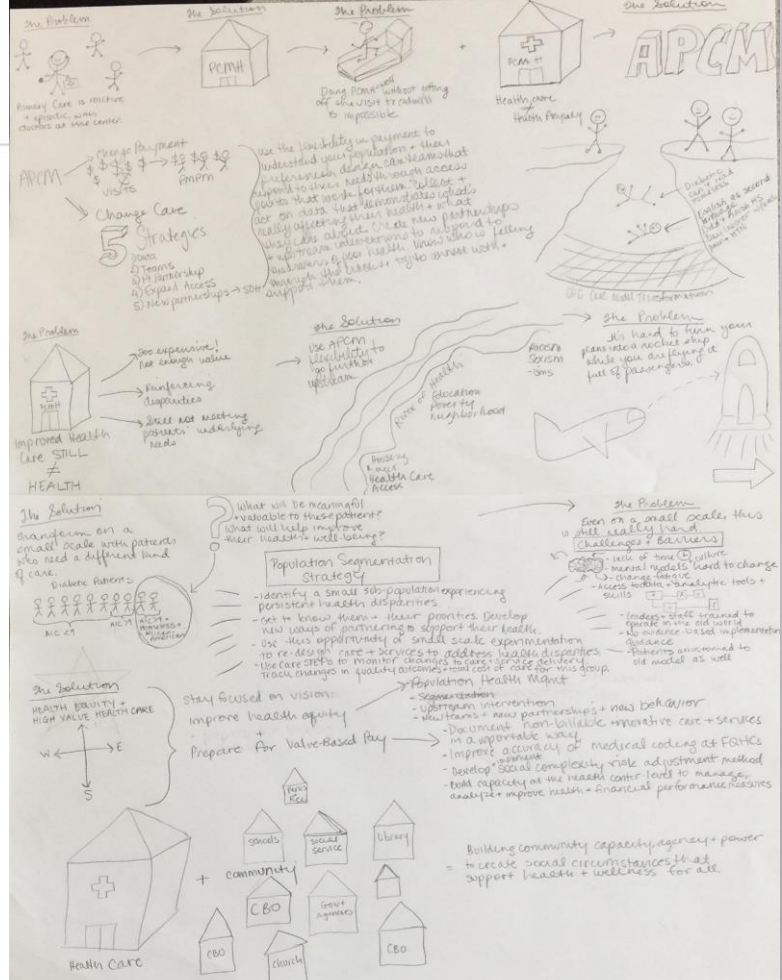 The Problem
Primary Care is reactive
+ episodic, with
doctors at the center
The Solution
PCMH
The Problem
Doing PCMH well without getting
off the visit treadmill
is impossible
+
PCMH
Healthcare
≠
Health Amply
The Solution
APCM
APCM
Change Payment
$ $ $ $ $
VISITS
$ $ $
PMPM
Change Care
5 Strategies
1) Data
2) Teams
3) Pt Partnership
4) Expand Access
5) New partnerships → SDH
use the flexibility in payment to
understand your population + their
preferences, design care teams that
respond to their needs through access
points that work for them. Collect +
act on data that demonstrates what's
really affecting their health + what
they care about. Create new partnerships
+ upstream interventions to respond to
root causes of poor health. Know who is falling
through the cracks + try to connect with +
support them.
Diabetic
can't read
English as second
language
Care Model Transformation
The Problem
PCMH
Improved Health
Care STILL
≠
HEALTH
Too expensive!
Not enough value
Reinforcing
disparities
Still not meeting
patients' underlying
needs
The Solution
use APCM
flexibility to
go further
upstream
River of Health
Racism
Sexism
-isms
Education
Poverty
Neighborhood
Housing
Health Care
Access
The Problem
It's hard to turn your
plane into a rocket ship
while you are flying it
full of passengers
The Solution
transform on a
small scale with patients
who need a different kind
of care.
Diabetic Patients
A1C <9
A1C >9
A1C >9 +
Homeless +
?
What will be meaningful
+ valuable to these patients?
What will help improve
their health + well-being?
Population Segmentation
Strategy
- Identify a small sub-population experiencing
persistent health disparities
- Get to know them + their priorities. Develop
new ways of partnering to support their health.
- Use this opportunity of small scale experimentation
to re-design care + services to address health disparities
- Use care STEPs to monitor changes to care + service delivery.
Track changes in quality outcomes + total cost of care for this group.
The Problem
Even on a small scale, this
is still really hard
Challenges + Barriers
- lack of time
culture
- mental models hard to change
- change fatigue
- Access to data + analytic tools +
skills
- leaders + staff trained to
operate in the old world
- No evidence-based implementation
guidance
- Patients accustomed to
old model as well
The Solution
HEALTH EQUITY +
HIGH VALUE HEALTH CARE
W E
S
stay focused on vision:
improve health equity
+
Prepare for Value-Based Pay
Population Health Mgmt
- Segmentation
- upstream intervention
- New teams + new partnerships + new behavior
- Document non-billable + innovative care + services
in a reportable way
- Improve accuracy of medical coding at FQHCs
- Develop + implement social complexity risk adjustment method
- Build capacity at the health center level to manage,
analyze + improve health + financial performance measures
Health Care
+ community
Parks
Rec
schools
social
service
library
CBO
Gov't
Agencies
CBO
church
CBO
= Building community capacity, agency + power
to create social circumstances that
support health + wellness for all.